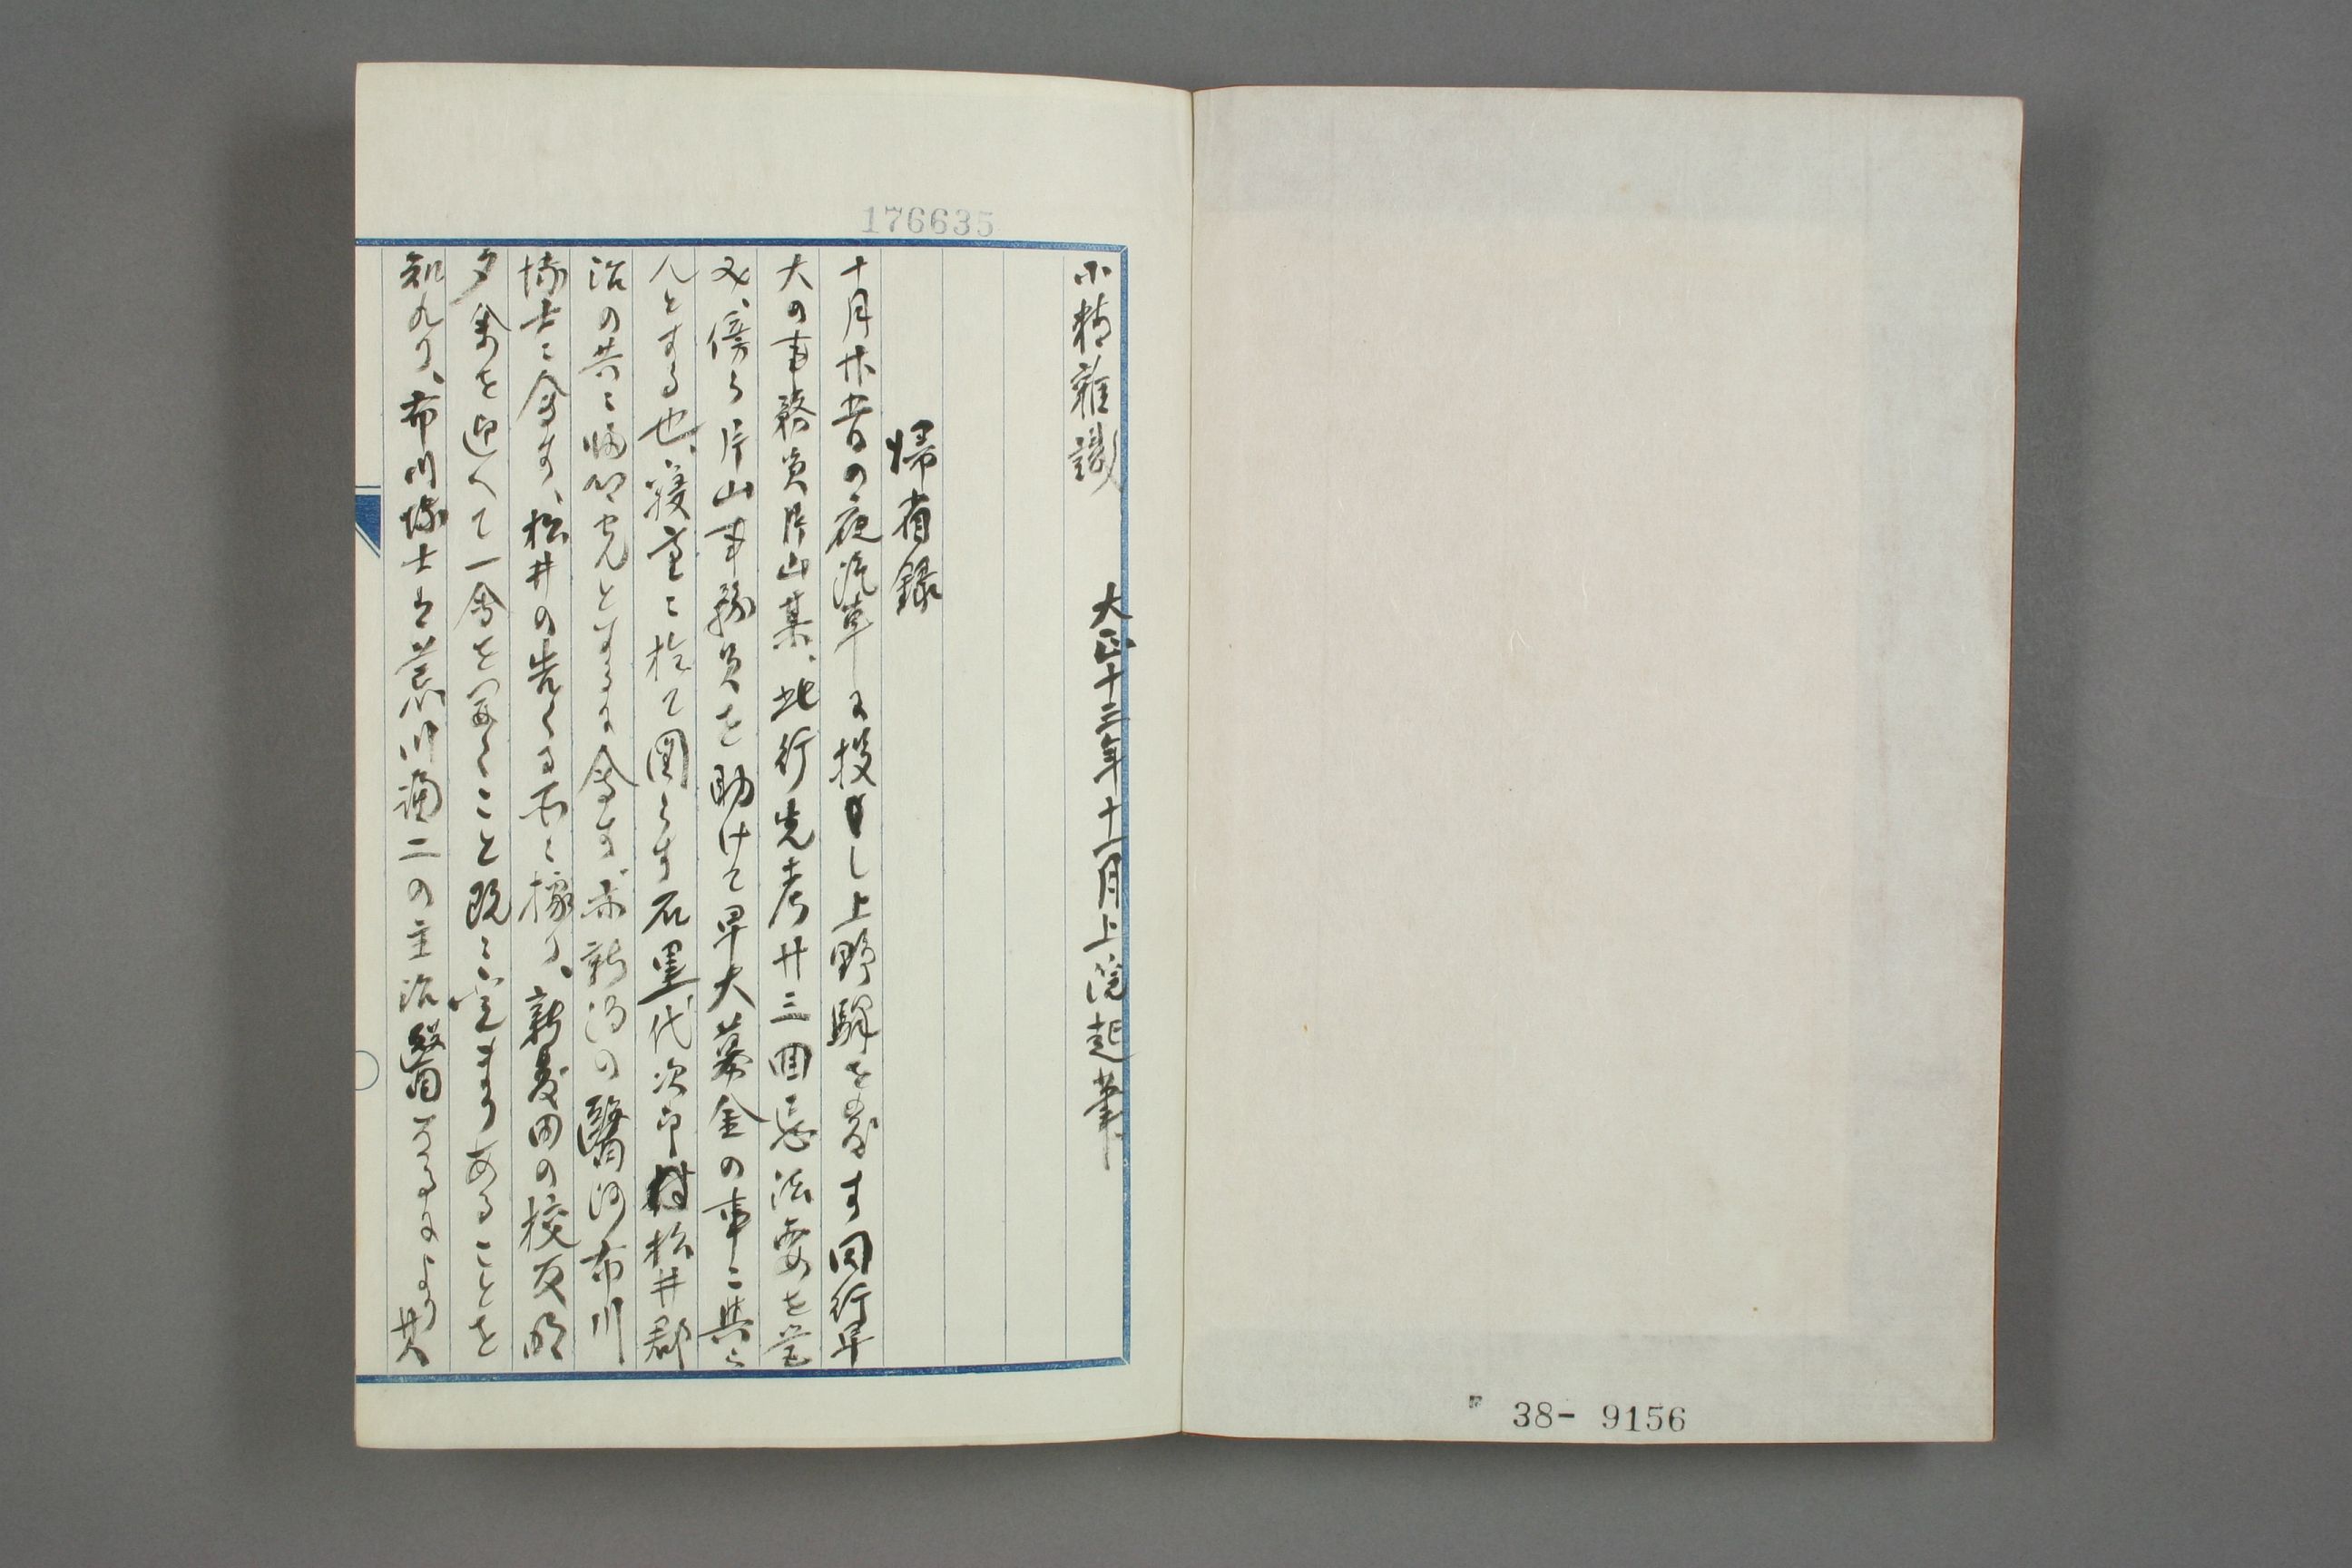 小精雑識
大正十三年十一月上浣起筆
帰省録
十月廿昔の夜汽車に投し上野駅を発す同行早
大の事務員片山某、此行先考廿三回忌法要を営
み、傍ら片山事務員を助けて早大募金の事に与ら
んとする也、寝室に於て図らす石黒代次郎村松井郡
治の共に帰省せんとするに会す、亦新潟の医師布川
博士に会す、松井の告くる所に拠り、新発田の校友明
夕余を迎へて一会を開くこと既に定まりあることを
知れり、布川博士は荒川満二の主治医なるにより其
176635
38-9156